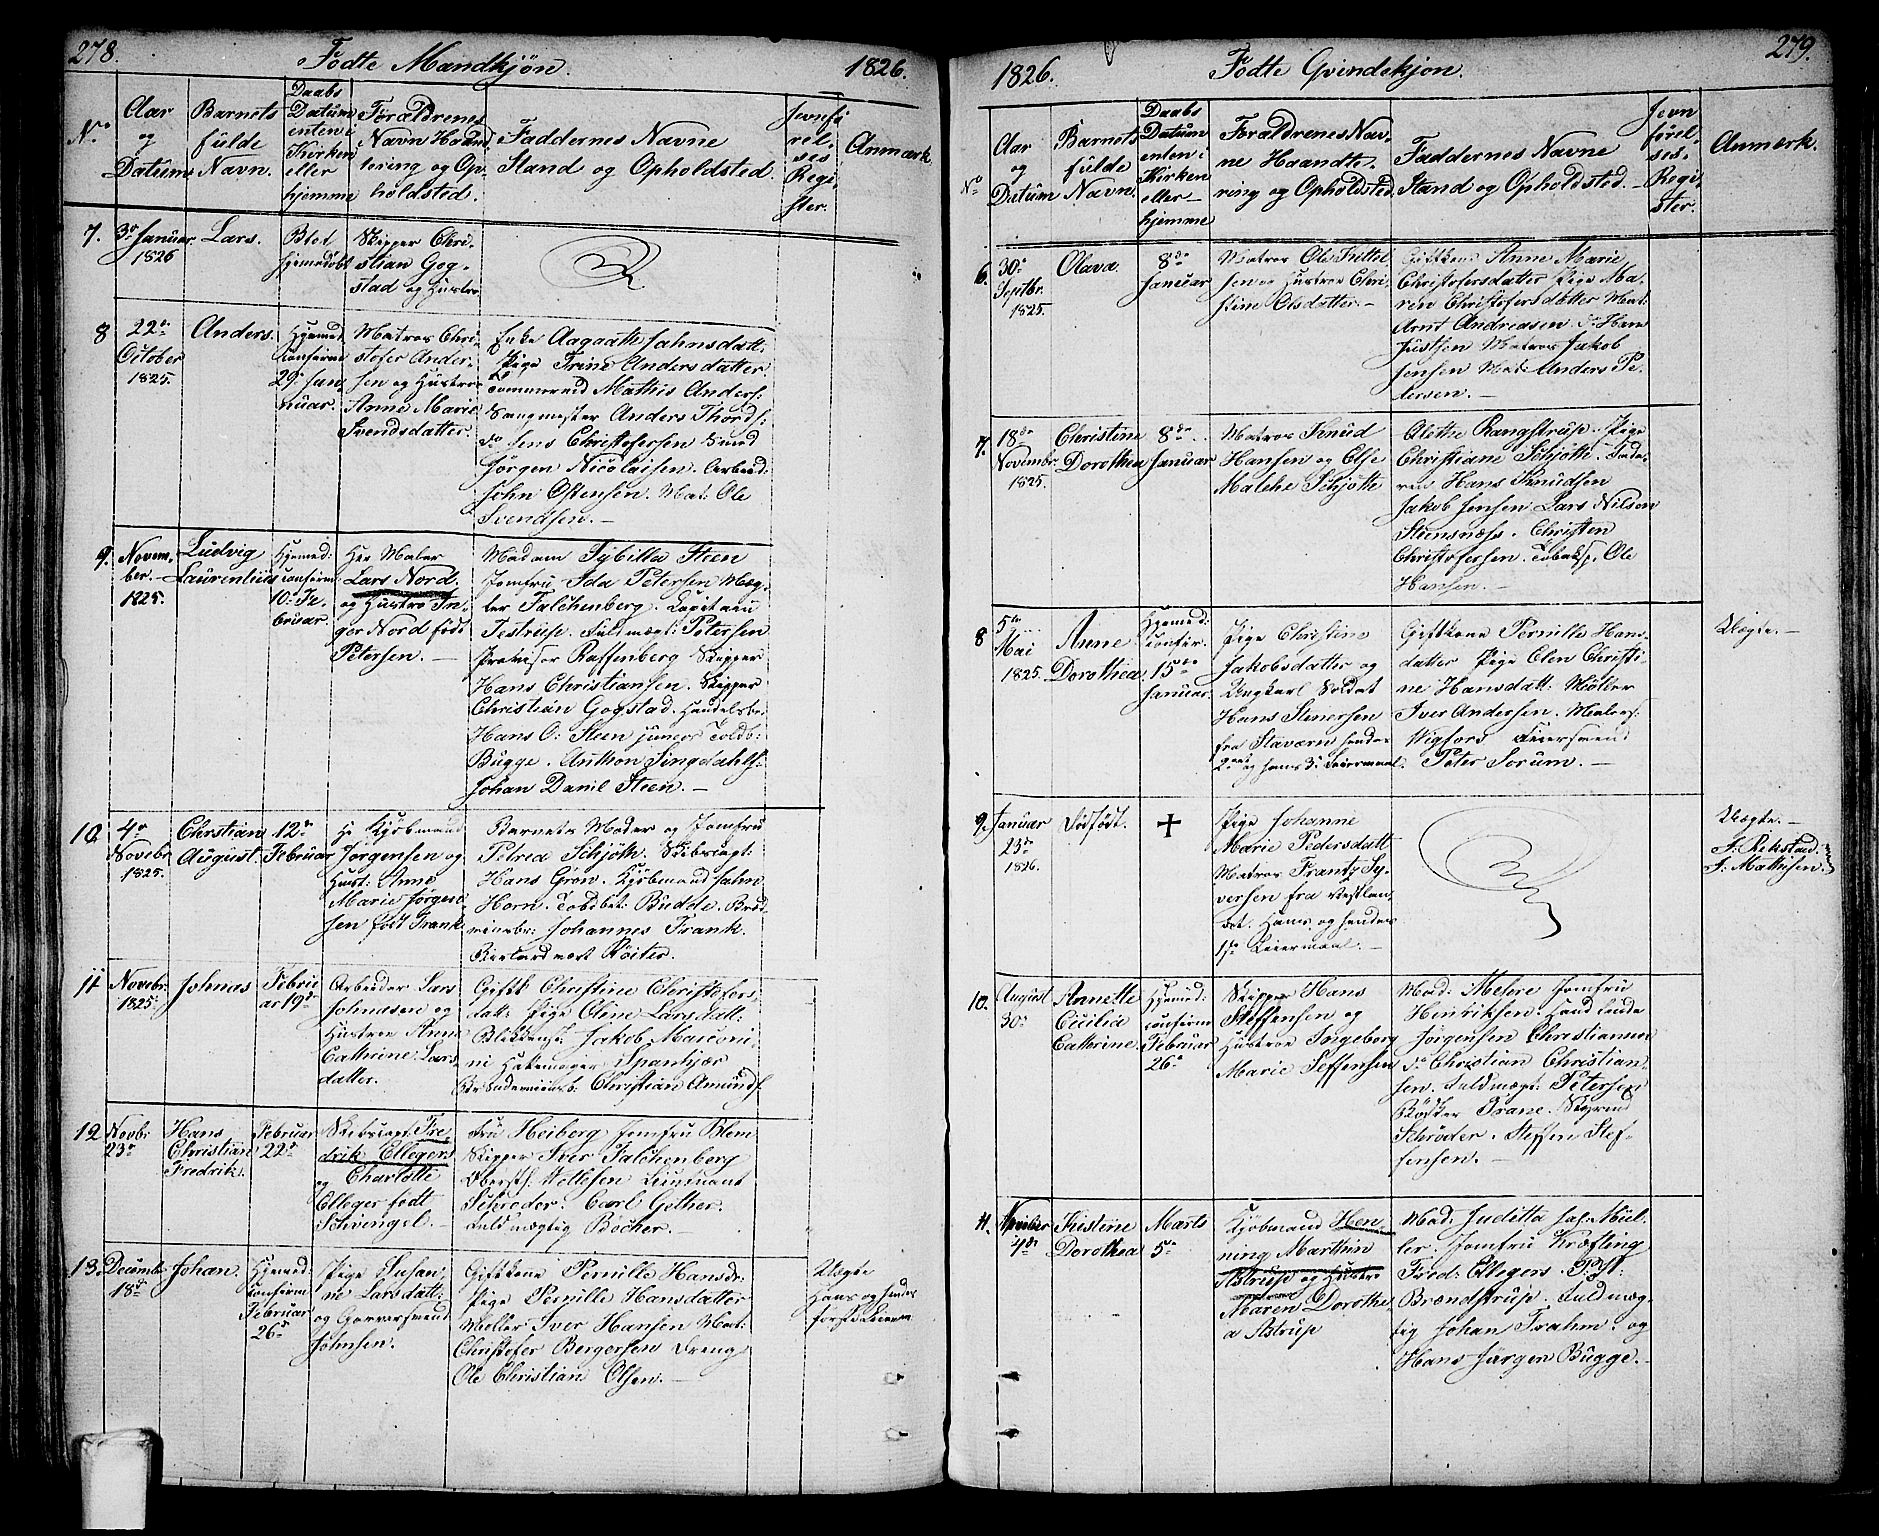 278.
Födte Mandkjön.
1826.
No
Aar
og
Datum
Barnets
fulde
Navn.
Daabs
Datum
enten i
Kirken
eller
hjemme
Forældrenes
Navn Haand
tering og Op
holdsted.
Faddernes Navne
Stand og Opholdsted.
Jevnfö
rel-
ses
Regi-
ster.
Anmærk.
7.
3die Januar
1826
Lars.
Blot
hjemedöbt
Skipper Chri-
stian Gog-
stad og Hustro
8
22de
October
1825.
Anders.
Hjemed:
confirm
29. Jan-
nuar.
Matros Chri-
stofer Ander-
sen og Hustroe
Anne Marie
Svendsdatter.
Enke Aagaath Jahnsdatt:
Pige Trine Andersdatter
Tömmermd Mathis Anders:
Saugmester Anders Thords:
do Jens Christofersen Smed
Jörgen Nicolaisen. Arbeid:
John Ostensen. Mat: Ole
Svendsen. —
9.
Novem-
ber. —
1825.
Ludvig
Laurentius
Hjemed:
confirm:
10. Fe-
bruar.
Her Maler
Lars Nord.
og Hustro In-
ger Nord föd
Petersen. —
Madam Sybilla Steen
Jomfru Ida Petersen Mæg-
ler Falchenberg. Capitain
Testrup. Fuldmægt: Petersen
Provisor Raffenberg Skipper
Hans Christiansen. Skipper
Christian Gogstad. Handelsbe:
Hans O: Steen junior Toldb:
Bugge. Anthon Lingdahls:
Johan Danil Steen. —
10.
4de
Novebr
1825.
Christian
August.
12te
Februar
Hr Kjöbmand
Jörgensen og
Hust: Anne
Marie Jörgen-
sen föd Frank
Barnets Moder og Jomfru
Petrea Schjöth. Skibscapt:
Hans Grön. Kjöbmand Jahn
Horn. Toldbet: Budde. Bröd-
Johannes Frank.
Röiter.
11
Novebr.
1825.
Johnas
Februar
19de
Arbeider Lars
Johnasen og
Hustroe Anne
Cathrine Lars
datter.
Giftk Christine Christofers-
datt: Pige Oline Larsdatt:
Blikkensl: Jakob Marconi-
ni Hatemager Spankjær
Christian Amunds.
12
Novbr.
23de
Hans
Christian
Fredrik.
Februar
22de
Skibscapt Fre-
drik Ellegers
og Charlotte
Elleger födt
Schvingel. —
Fru Heiberg Jomfru Blom
Skipper Iver Falchenberg
Oberstl: Netlesen Lieutnant
Schröder. Carl Gether.
Fuldmægtig Böcher. —
13.
Decembr
18de
Johan.
Hjemed:
confirm
Februar
26de
Pige Susan-
ne Larsdatt:
og Garversvend
Johnsen.
Giftkone Pernille Hansdr:
Pige Pernille Hansdatter
Möller Iver Hansen Mat:
Christofer Bergersen Dreng
Ole Christian Olsen. —
Uægte
Hans og hendes
förste Leierm
1826.
Födte Qvindekjön.
279.
No
Aar
og
Datum
Barnets
fulde
Navn.
Daabs
Datum
enten i
Kirken
eller
hjemme
Forældrenes Nav-
ne Haandte-
ring og Opholdsted.
Faddernes Navne
Stand og Opholdsted. —
Jevn
förel-
ses.
Regi-
ster.
Anmærk.
6.
30te
Septbr.
1825.
Olava.
8de
Januar
Matros Ole Kittel
sen og Hustroe Chri-
stine Olsdatter. —
Giftkone Anne Marie
Christofersdatter Pige Ma-
ren Christofersdatter Mat:
Arnt Andreasen do Hans
Justsen Matros Jakob
Jensen Mat: Anders Pe-
tersen. —
7.
18de
Novembr.
1825.
Christine
Dorothea
8de
Januar
Matros Knud
Hansen og Else
Malene Schjötte
Alethe Rangstrup. Pige
Christiane Schjötte. Fade-
ren Hans Knudsen
Jakob Jensen Lars Nilsen
Steensnæss. Christen
Christofersen. Tobaksp: Ole
Hansen. —
8
5te
Mai
1825.
Anne
Dorothea
Hjemed:
confir:
15de
Januar.
Pige Christine
Jakobsdatter og
Ungkarl Soldat
Hans Stenersen
fra Staværn hendes
2det og hans 3. Leiermaal.
Giftkone Pernille Hans-
datter Pige Elen Christi-
ne Hansdatt: Möller
Iver Andersen. Malers:
Wigfors Feiersvend
Peter Sorum. —
Uægte. —
9.
Januar
23de
1826.
Dödfödt.
+
Pige Johanne
Marie Pedersdatt
Matros Frantz Sy-
versen fra Vestlan-
det. Hans og hendes
1ste Leiermaal. —
Uægte. —
J. Rekstad.
J. Mathisen.
10.
August
30te
Annette
Cicilia
Cathrine.
Hjemed:
confirm
Februar
26de
Skipper Hans
Steffensen og
Hustroe Ingeborg
Marie Seffensen
Mad: Melöre Jomfru
Henriksen. Hand lende
Jörgensen Christiansen
do Christian Christian-
sen. Fuldmægt: Petersen
Bödker Trane. Styrmd
Schröder. Steffen Stef-
fensen. —
11.
4de
Kistine
Dorothea
Marts
5te
Kjöbmand Hen-
ning Marthin
Astrup og Hustro
Maren Dorothe-
a Astrup
Mad: Juditta Jaf: Mül-
ler. Jomfru Kræfting
Fred: Ellegers. P: H:
Brændstrup. Fuldmæg-
tig Johan Frahm: og
Hans Jörgen Bugge. —